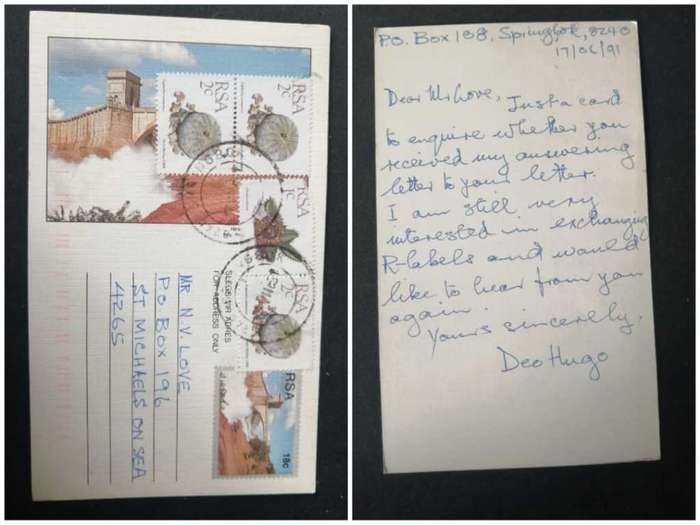 RSA
2c
RSA
2c
RSA
1c
RSA
2c
SLEGS VIR ADRES
FOR ADDRESS ONLY
RSA
18c
MR N.V. LOVE
PO BOX 196
ST MICHAELS ON SEA
4265
P.O. Box 108, Springbok, 8240
17/06/91
Dear Mr Love, Just a card
to enquire whether you
received my answering
letter to your letter.
I am still very
interested in exchanging
R-labels and would
like to hear from you
again.
Yours sincerely,
Deo Hugo